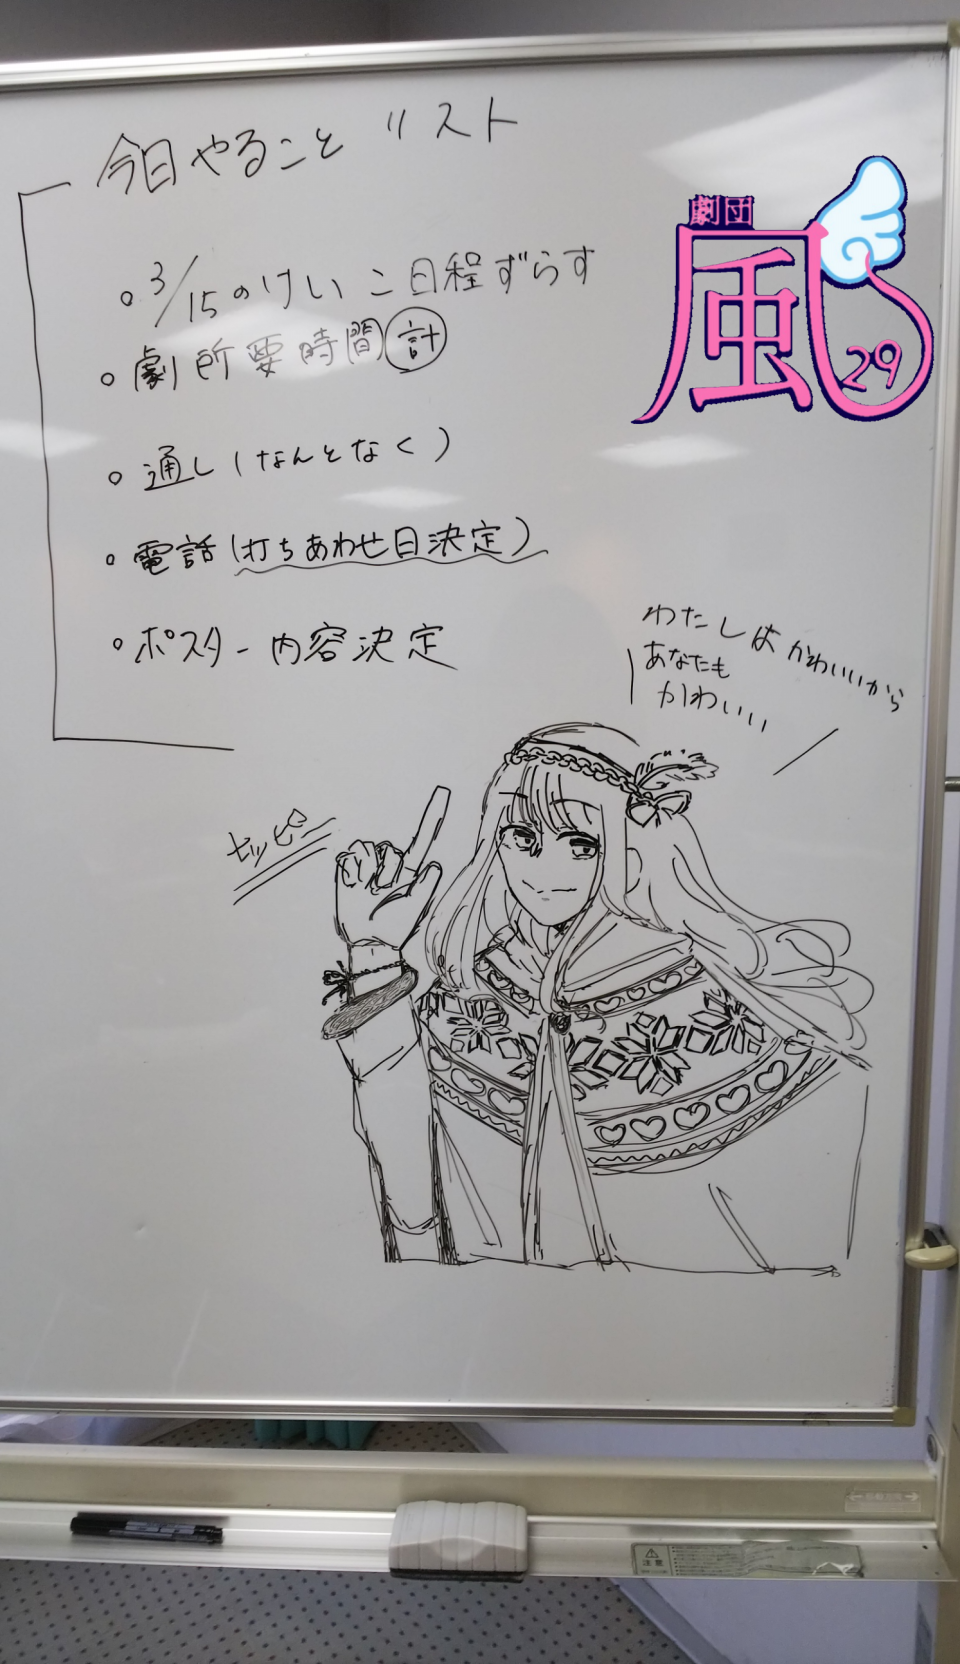 今日やること リスト
○ 3/15のけいこ日程ずらす
○ 劇所要時間計
○ 通し(なんとなく)
○ 電話(打ちあわせ日決定)
○ ポスター内容決定
劇団
風
29
わたしはかわいいから
あなたも
かわいい
注意